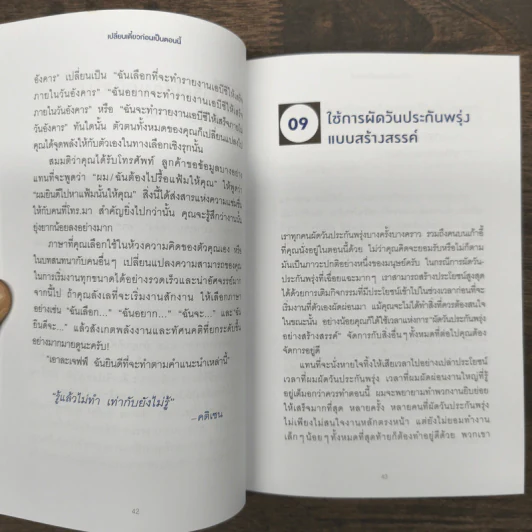 เปลี่ยนเดี๋ยวก่อนเป็นตอนนี้
อังคาร" เปลี่ยนเป็น "ฉันเลือกที่จะทำรายงานเอบีซีให้เสร็จ
ภายในวันอังคาร" "ฉันอยากจะทำรายงานเอบีซีให้เสร็จ
ภายในวันอังคาร" หรือ "ฉันจะทำรายงานเอบีซีให้เสร็จภายใน
วันอังคาร" ทันใดนั้น ตัวตนทั้งหมดของคุณก็เปลี่ยนแปลง
คุณได้จุดพลังให้กับตัวเองในทางเลือกเชิงรุกนั้น
สมมติว่าคุณได้รับโทรศัพท์ ลูกค้าขอข้อมูลบางอย่าง
แทนที่จะพูดว่า "ผม/ฉันต้องไปรื้อแฟ้มให้คุณ" ให้พูดว่า
"ผมยินดีไปหาแฟ้มนั้นให้คุณ" สิ่งนี้ได้ส่งสารแห่งความ
ให้กับคนที่โทร.มา สำคัญยิ่งไปกว่านั้น คุณจะรู้สึกว่างานนั้น
ยุ่งยากน้อยลงอย่างมาก
ภาษาที่คุณเลือกใช้ในห้วงความคิดของตัวคุณเอง หรือ
ในบทสนทนากับคนอื่นๆ เปลี่ยนแปลงความสามารถของคุณ
ในการเริ่มงานทุกขนาดได้อย่างรวดเร็วและน่าอัศจรรย์มาก
จากนี้ไป ถ้าคุณลังเลที่จะเริ่มงานสักงาน ให้เลือกภาษา
อย่างเช่น "ฉันเลือก..." "ฉันอยาก..." "ฉันจะ..." และ "ฉัน
ยินดีจะ..." แล้วสังเกตพลังงานและทัศนคติที่ยกระดับขึ้น
อย่างมากมายดูนะครับ!
"เอาละเจฟฟ์ ฉันยินดีที่จะทำตามคำแนะนำเหล่านี้"
"รู้แล้วไม่ทำ เท่ากับยังไม่รู้"
– คติเซน
42
09 ใช้การผัดวันประกันพรุ่ง
แบบสร้างสรรค์
เราทุกคนผัดวันประกันพรุ่งบางครั้งบางคราว รวมถึงคนบนเก้าอี้
ที่คุณนั่งอยู่ในตอนนี้ด้วย ไม่ว่าคุณคิดจะยอมรับหรือไม่ก็ตาม
มันเป็นภาวะปกติอย่างหนึ่งของมนุษย์ครับ ในกรณีการผัดวัน
ประกันพรุ่งที่เฉื่อยแฉะมากๆ เราสามารถสร้างประโยชน์สูงสุด
ได้ด้วยการเติมกิจกรรมที่มีประโยชน์เข้าไปในช่วงเวลาก่อนที่จะ
เริ่มงานที่ตัวเองผัดผ่อนมา แม้คุณจะไม่ได้ทำสิ่งที่ควรต้องสนใจ
ในขณะนั้น อย่างน้อยคุณก็ได้ใช้เวลาแห่งการ"ผัดวันประกันพรุ่ง
อย่างสร้างสรรค์" จัดการกับสิ่งอื่นๆ ทั้งหมดที่ต่อไปคุณต้อง
จัดการอยู่ดี
แทนที่จะนั่งหายใจทิ้งให้เสียเวลาไปอย่างเปล่าประโยชน์
เวลาที่ผมผัดวันประกันพรุ่ง เวลาที่ผมผัดผ่อนงานใหญ่ที่รู้
อยู่เต็มอกว่าควรทำตอนนี้ ผมจะพยายามทำพวกงานยิบย่อย
ให้เสร็จมากที่สุด หลายครั้ง หลายคนที่ผัดวันประกันพรุ่ง
ไม่เพียงไม่สนใจงานหลักตรงหน้า แต่ยังไม่ยอมทำงาน
เล็กๆ น้อยๆ ทั้งหมดที่สุดท้ายก็ต้องทำอยู่ดีด้วย พวกเขา